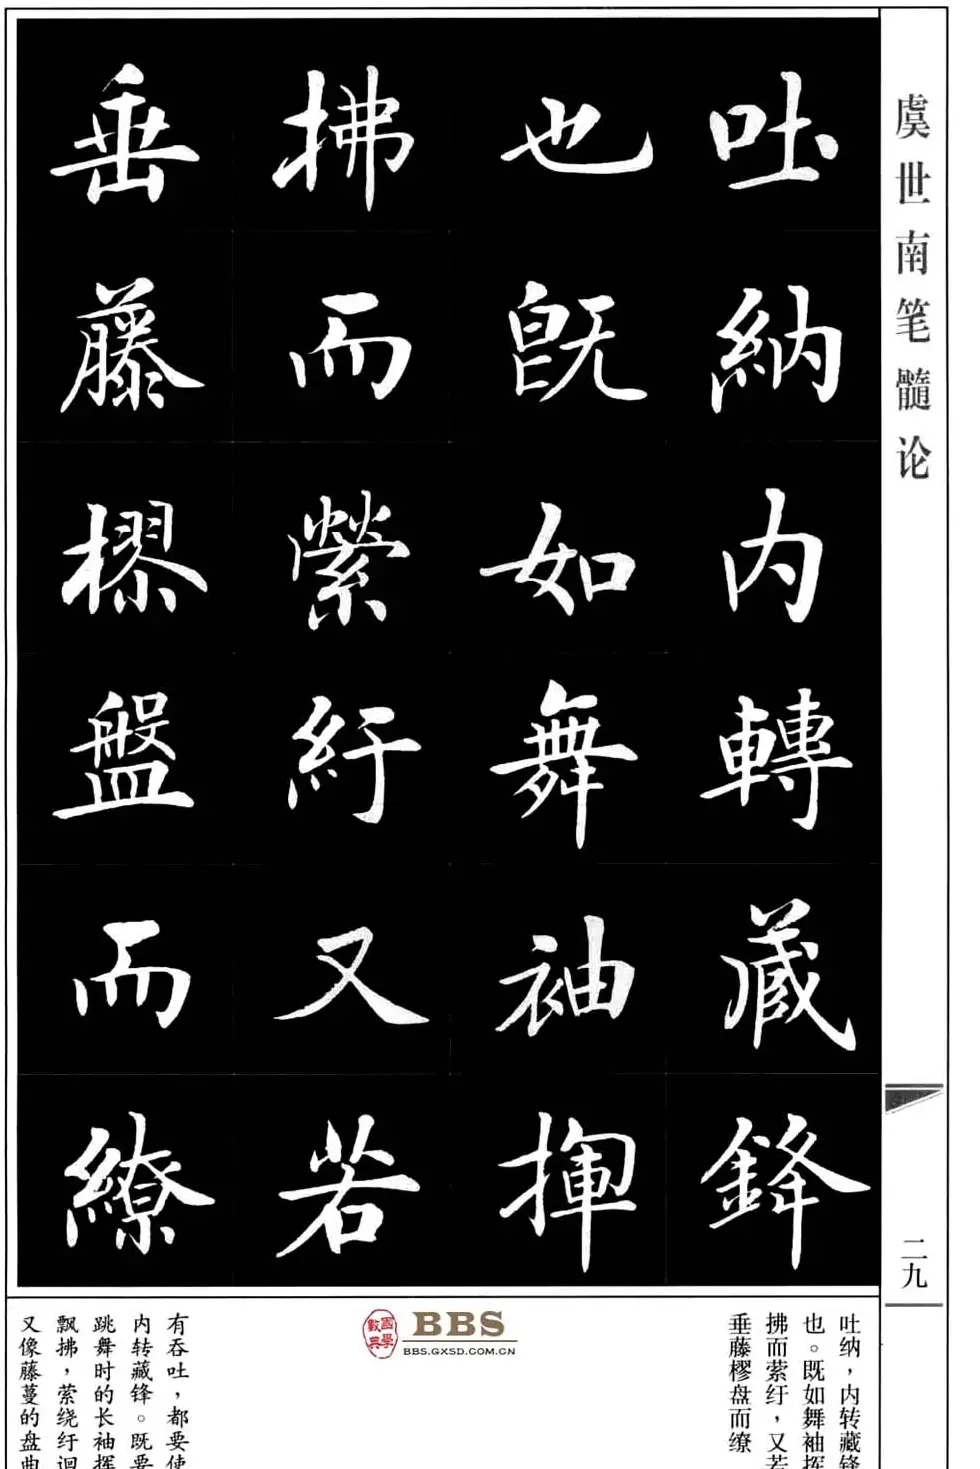 虞世南笔髓论
吐納内轉藏鋒
也既如舞袖揮
拂而縈紆又若
垂藤樛盤而繚
二九
吐纳，内转藏锋
也。既如舞袖挥
拂而萦纡，又若
垂藤樛盘而缭
國學數典
BBS
BBS.GXSD.COM.CN
有吞吐，都要使
内转藏锋。既要
跳舞时的长袖挥
飘拂，萦绕纡迴
又像藤蔓的盘曲